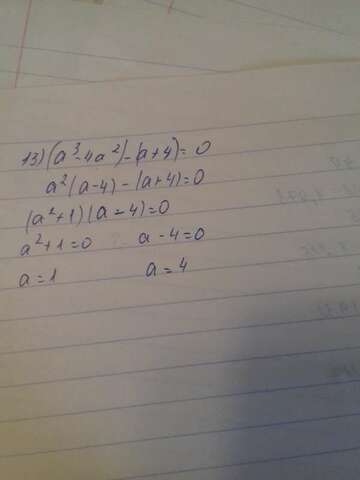 13) (a³-4a²)-(a+4)=0
a²(a-4)-(a+4)=0
(a²+1)(a-4)=0
a²+1=0 a-4=0
a=1 a=4